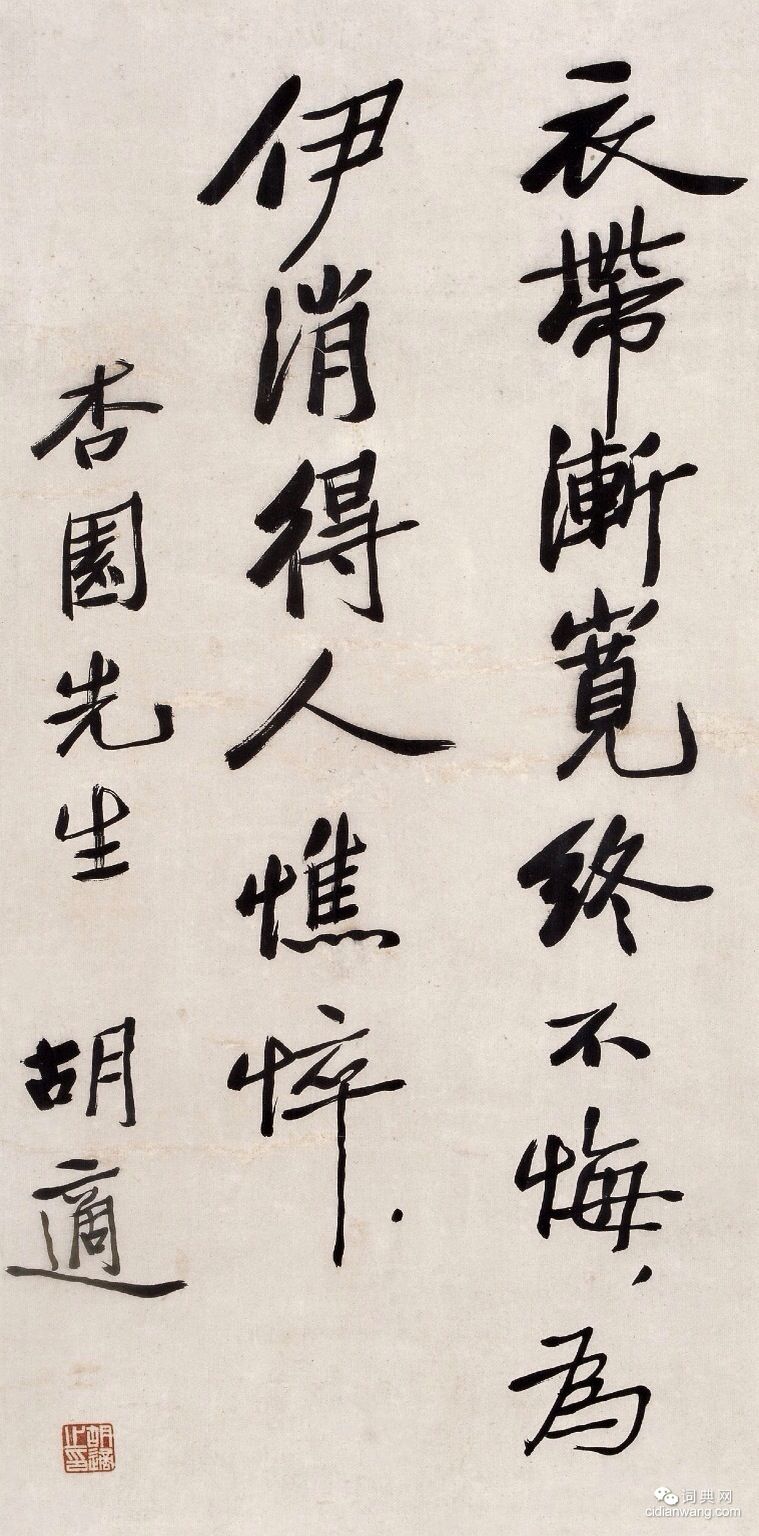 衣帶漸寬終不悔、為
伊消得人憔悴．
杏園先生 胡適
胡適之印
词典网
cidianwang.com